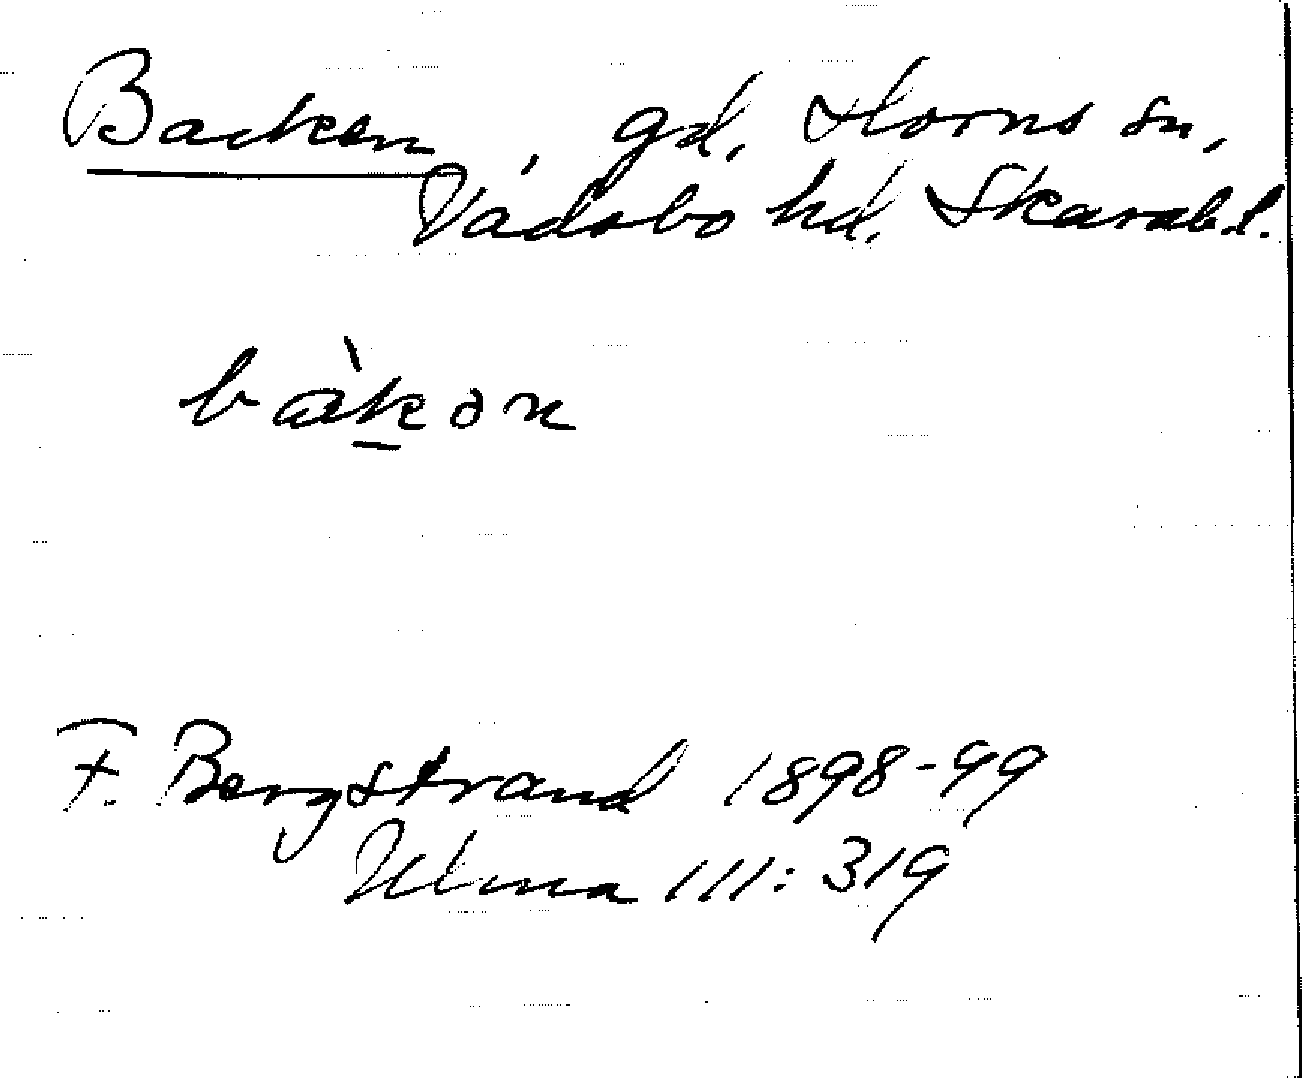 Backen, gd, Horns sn,
Vadsbo hd, Skarab.l.
bàkən
F. Bergstrand 1898-99
Ulma 111: 319